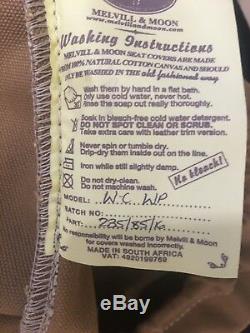 MELVILL & MOON
www.melvillandmoon.com
Washing Instructions
MELVILL & MOON SEAT COVERS ARE MADE
FROM 100% NATURAL COTTON CANVAS AND SHOULD
ONLY BE WASHED IN THE old fashioned way
Wash them by hand in a flat bath.
Only use cold water, never hot.
Rinse the soap out really thoroughly.
Soak in bleach-free cold water detergent.
DO NOT SPOT CLEAN OR SCRUB.
Take extra care with leather trim version.
Never spin or tumble dry.
Drip-dry them instead on a line.
Iron while still slightly damp.
Do not dry-clean.
Do not machine wash.
No bleach!
MODEL: W.C. WP
BATCH NO:
PART: 225/85/16
No responsibility will be borne by Melvill & Moon
for covers washed incorrectly.
MADE IN SOUTH AFRICA
VAT: 4920199769